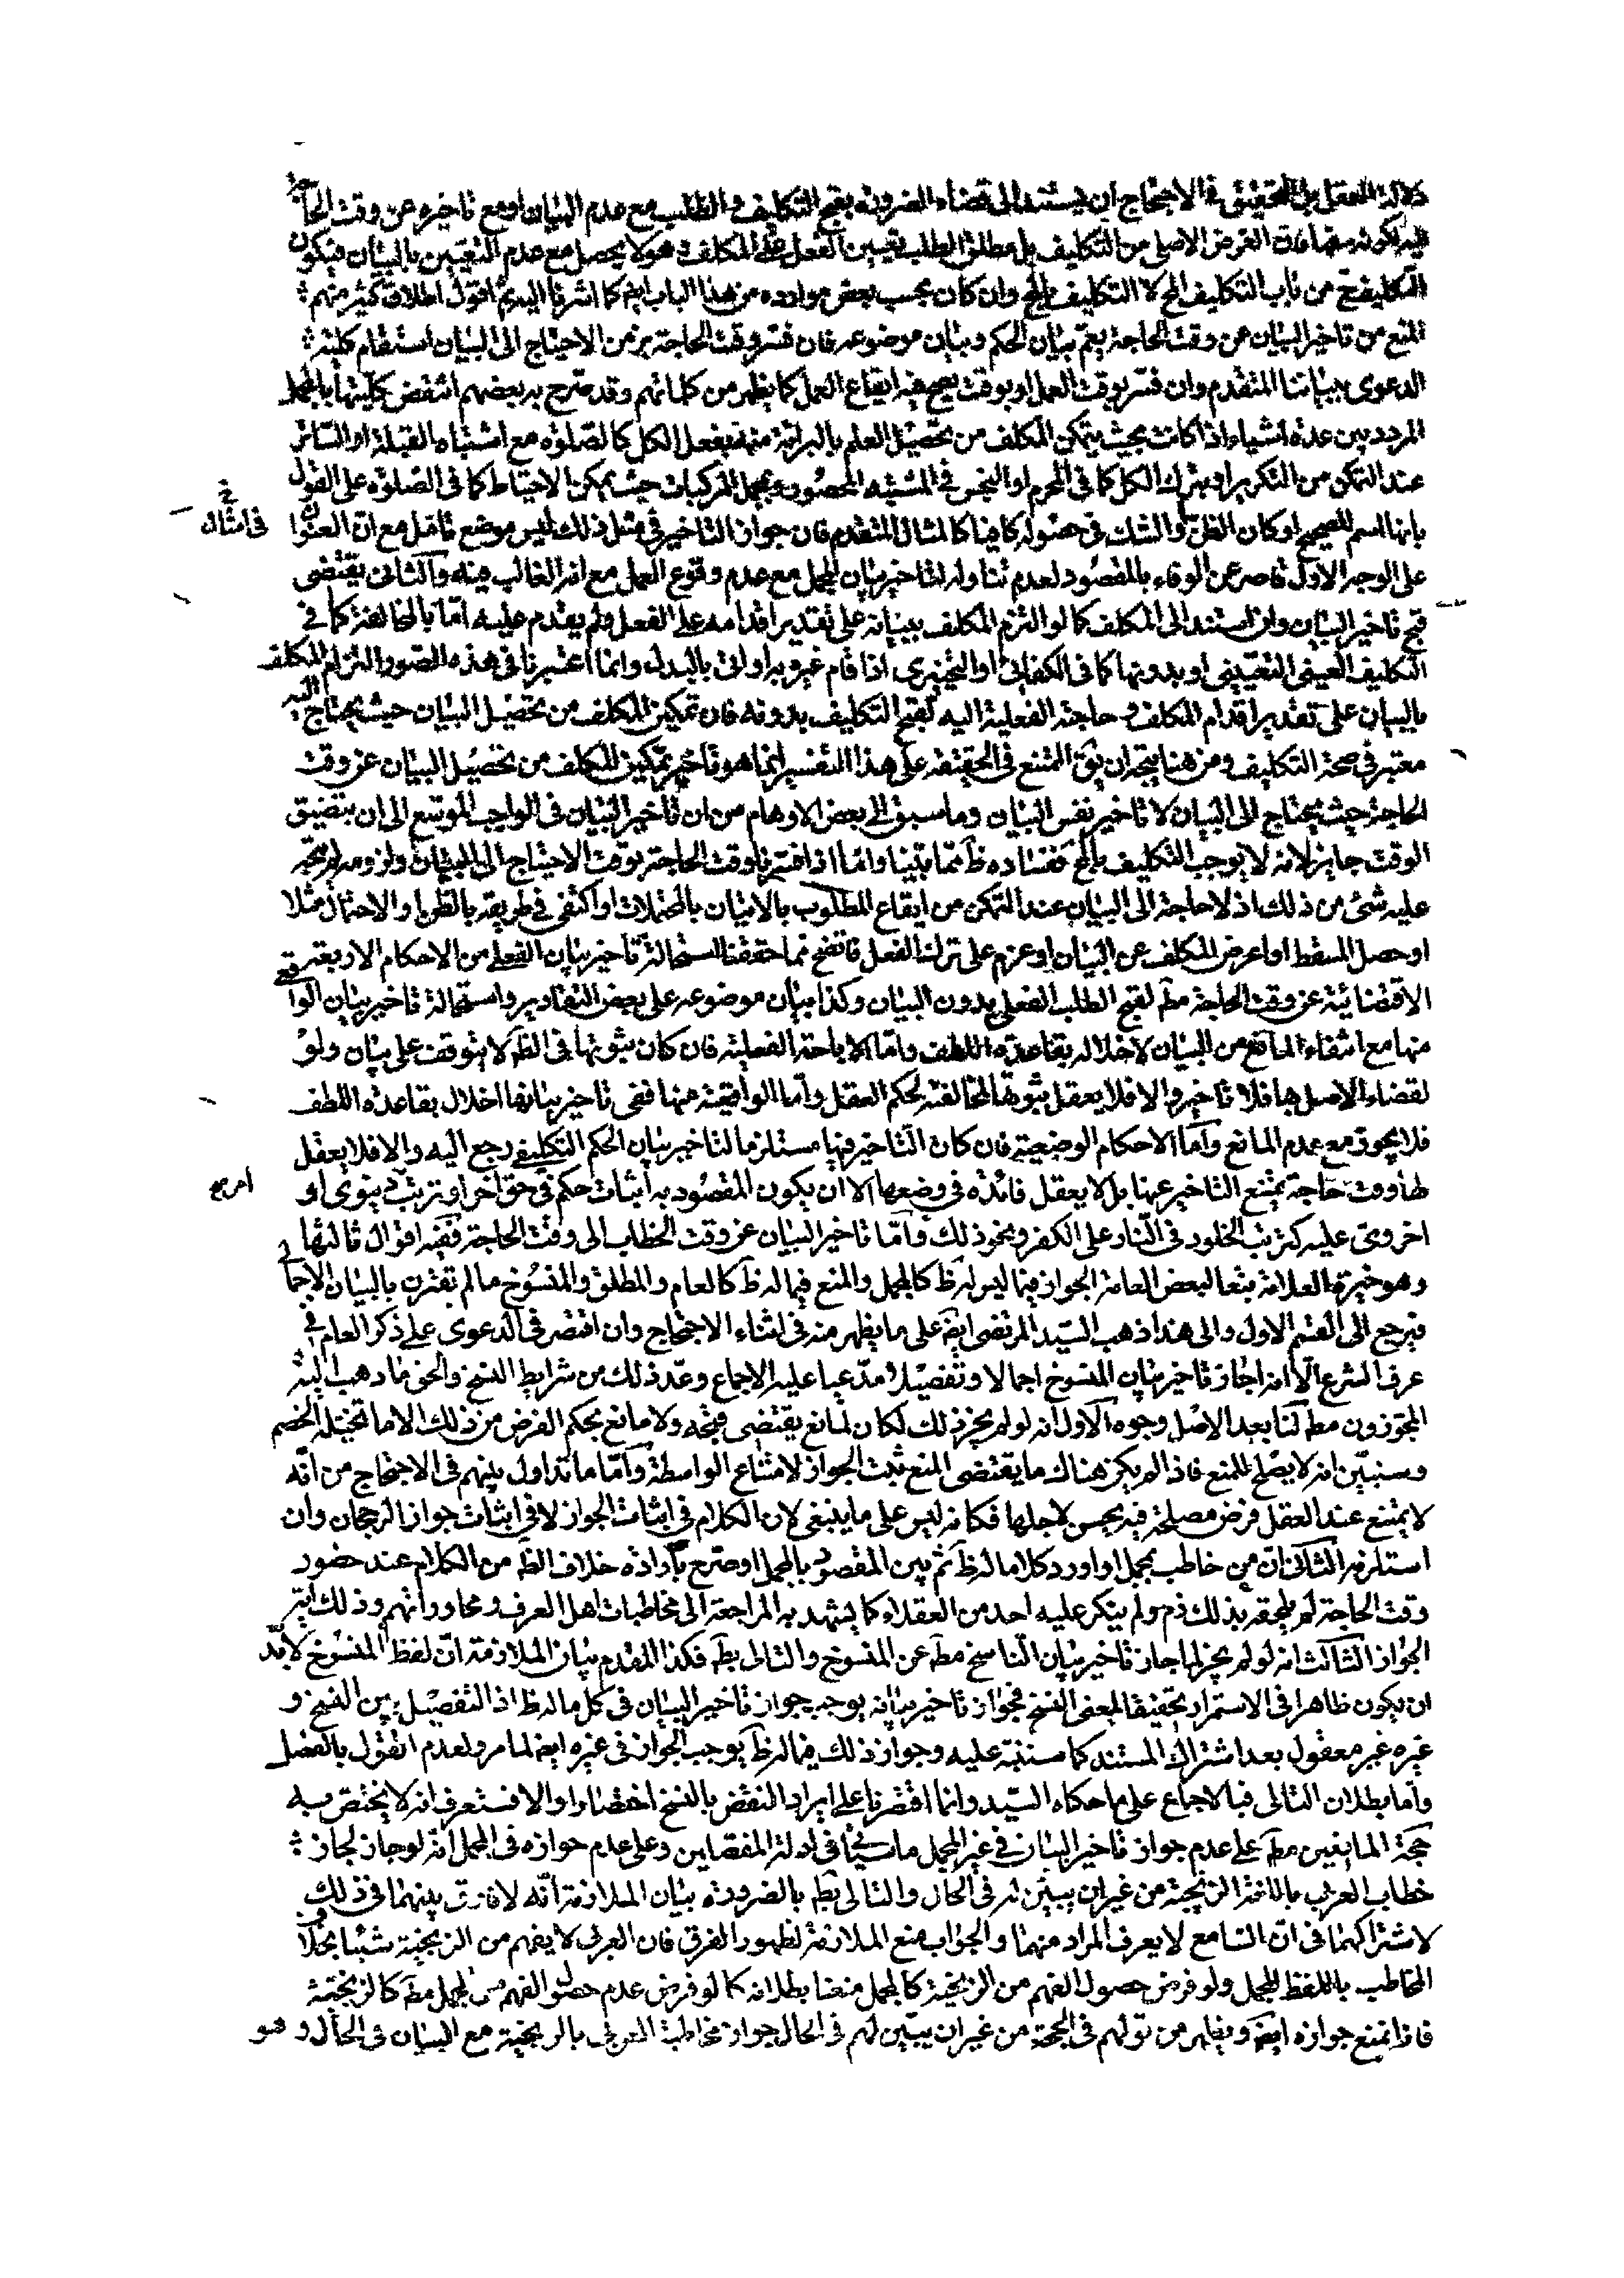 دلالة العقل بل التحقيق في الاحتجاج ان يستند الى قضاء الضرورة بقبح التكليف والطلب مع عدم البيان او مع تاخيره عن وقت الحاجة
فان الغرض الاصلي من التكليف بل مطلق الطلب تعيين الفعل على المكلف وهو لا يحصل مع عدم التعيين بالبيان فيكون
التكليف ح من باب التكليف المح لا التكليف بالمح وان كان بحسب بعض موارده من هذا الباب ايض كما اشرنا اليه ثم اقول اطلاق كثير منهم
المنع من تاخير البيان عن وقت الحاجة يعم بيان الحكم وبيان موضوعه فان فسر وقت الحاجة بزمن الاحتياج الى البيان استقام كلية
الدعوى ببياننا المتقدم وان فسر بوقت العمل او بوقت يصح فيه ايقاع العمل كما يظهر من كلماتهم وقد صرح به بعضهم انتقض كليتها بالمجمل
المردد بين عدة اشياء اذا كانت بحيث يتمكن المكلف من تحصيل العلم بالبرائة منه بفعل الكل كالصلوة مع اشتباه القبلة او الساتر
عند التمكن من التكرير او بترك الكل كما في المحرم او النجس في المشتبه المحصور ومجمل المركبات حيث يمكن الاحتياط كما في الصلوة على القول
بانها اسم للصحيح او كان الظن والشك في حصوله كافيا كالمثال المتقدم فان جواز التاخير في مثل ذلك ليس موضع تامل مع ان العنوان
في امثال
على الوجه الاول قاصر عن الوفاء بالمقصود لعدم تناوله لتاخير بيان المجمل مع عدم وقوع العمل مع انه الغالب فيه والثاني يقتضي
قبح تاخير البيان وان استند الى المكلف كما لو التزم المكلف ببيانه على تقدير اقدامه على الفعل ولم يقدم عليه اما بالمخالفة كما في
التكليف العيني التعييني او بدونها كما في الكفائي او التخييري اذا قام غيره به او اتى بالبدل وانما اعتبرنا في هذه الصور التزام المكلف
بالبيان على تقدير اقدام المكلف وحاجته الفعلية اليه لقبح التكليف بدونه فان تمكين المكلف من تحصيل البيان حيث يحتاج اليه
معتبر في صحة التكليف ومن هنا يتجه ان يق الممتنع في الحقيقة على هذا التفسير انما هو تاخير تمكين المكلف من تحصيل البيان عن وقت
الحاجة حيث يحتاج الى البيان لا تاخير نفس البيان وما سبق الى بعض الاوهام من ان تاخير البيان في الواجب الموسع الى ان يتضيق
الوقت جايز لانه لا يوجب التكليف بالمح ففساده ظ مما بينا واما اذا فسرنا وقت الحاجة بوقت الاحتياج الى البيان ولزومه لم يتجه
عليه شئ من ذلك اذ لا حاجة الى البيان عند التمكن من ايقاع المطلوب بالاتيان بالمحتملات او اكتفى في طريقه بالظن او الاحتمال مثلا
او حصل المسقط او اعرض المكلف عن البيان او عزم على ترك الفعل فاتضح مما حققنا استحالة تاخير بيان الفعلي من الاحكام الاربعة
الاقتضائية عن وقت الحاجة مط لقبح الطلب الفعلي بدون البيان وكذا بيان موضوعه على بعض التقادير واستحالة تاخير بيان الواقعي
منها مع انتفاء المانع من البيان لاخلاله بقاعدة اللطف واما الاباحة الفعلية فان كان ثبوتها في الظ لا يتوقف على بيان ولو
لقضاء الاصل بها فلا تاخير والا فلا يعقل ثبوتها لمخالفته لحكم العقل واما الواقعية منها ففي تاخير بيانها اخلال بقاعدة اللطف
فلا يجوز مع عدم المانع واما الاحكام الوضعية فان كان التاخير فيها مستلزما لتاخير بيان الحكم التكليفي رجع اليه والا فلا يعقل
لها وقت حاجة يمتنع التاخير عنها بل لا يعقل فائدة في وضعها الا ان يكون المقصود به اثبات حكم في حق اخر او ترتب دنيوي او
امر
اخروي عليه كترتب الخلود في النار على الكفر ونحو ذلك واما تاخير البيان عن وقت الخطاب الى وقت الحاجة ففيه اقوال ثالثها
وهو خيرة العلامة تبعا لبعض العامة الجواز فيما ليس له ظ كالمجمل والمنع فيما له ظ كالعام والمطلق والمنسوخ ما لم يقترن بالبيان الاجمالي
فيرجع الى القسم الاول والى هذا ذهب السيد المرتضى ايض على ما يظهر منه في اثناء الاحتجاج وان اقتصر في الدعوى على ذكر العام في
عرف الشرع الا انه اجاز تاخير بيان المنسوخ اجمالا وتفصيلا مدعيا عليه الاجماع وعد ذلك من شرايط النسخ والحق ما ذهب اليه
المجوزون مط لنا بعد الاصل وجوه الاول انه لو لم يجز ذلك لكان لمانع يقتضي قبحه ولا مانع بحكم الفرض من ذلك الا ما تخيله الخصم
وسنبين انه لا يصلح للمنع فاذا لم يكن هناك ما يقتضي المنع ثبت الجواز لامتناع الواسطة واما ما تداول بينهم في الاحتجاج من انه
لا يمتنع عند العقل فرض مصلحة فيه يحسن لاجلها فكانه ليس على ما ينبغي لان الكلام في اثبات الجواز لا في اثبات جواز الرجحان وان
استلزمه الثاني ان من خاطب بمجمل او اورد كلاما له ظ ثم بين المقصود بالمجمل او صرح بارادة خلاف الظ من الكلام عند حضور
وقت الحاجة لم يلحقه بذلك ذم ولم ينكر عليه احد من العقلاء كما يشهد به المراجعة الى مخاطبات اهل العرف ومحاوراتهم وذلك اية
الجواز الثالث انه لو لم يجز لما جاز تاخير بيان الناسخ مط عن المنسوخ والتالي بط فكذا المقدم بيان الملازمة ان لفظ المنسوخ لا بد
ان يكون ظاهرا في الاستمرار تحقيقا لمعنى النسخ فجواز تاخير بيانه يوجب جواز تاخير البيان في كل ما له ظ اذ التفصيل بين النسخ و
غيره غير معقول بعد اشتراك المستند كما سننبه عليه وجواز ذلك فيما له ظ يوجب الجواز في غيره ايض لما مر ولعدم القول بالفصل
واما بطلان التالي فبالاجماع على ما حكاه السيد وانما اقتصرنا على ايراد النقض بالنسخ اختصارا والا فستعرف انه لا يختص به
حجة المانعين مط على عدم جواز تاخير البيان في غير المجمل ما سيجئ في ادلة المفصلين وعلى عدم جوازه في المجمل انه لو جاز لجاز
خطاب العربي باللغة الزنجية من غير ان يبين له في الحال والتالي بط بالضرورة بيان الملازمة انه لا فارق بينهما في ذلك
لاشتراكهما في ان السامع لا يعرف المراد منهما والجواب منع الملازمة لظهور الفرق فان العربي لا يفهم من الزنجية شيئا بخلاف
المخاطب باللفظ المجمل ولو فرض حصول الفهم من الزنجية كالمجمل منعنا بطلانه كما لو فرض عدم حصول الفهم من المجمل مط كالزنجية
فانا نمنع جوازه ايض ويظهر من قولهم في الحجة من غير ان يبين لهم في الحال جواز مخاطبة العربي بالزنجية مع البيان في الحال وهو